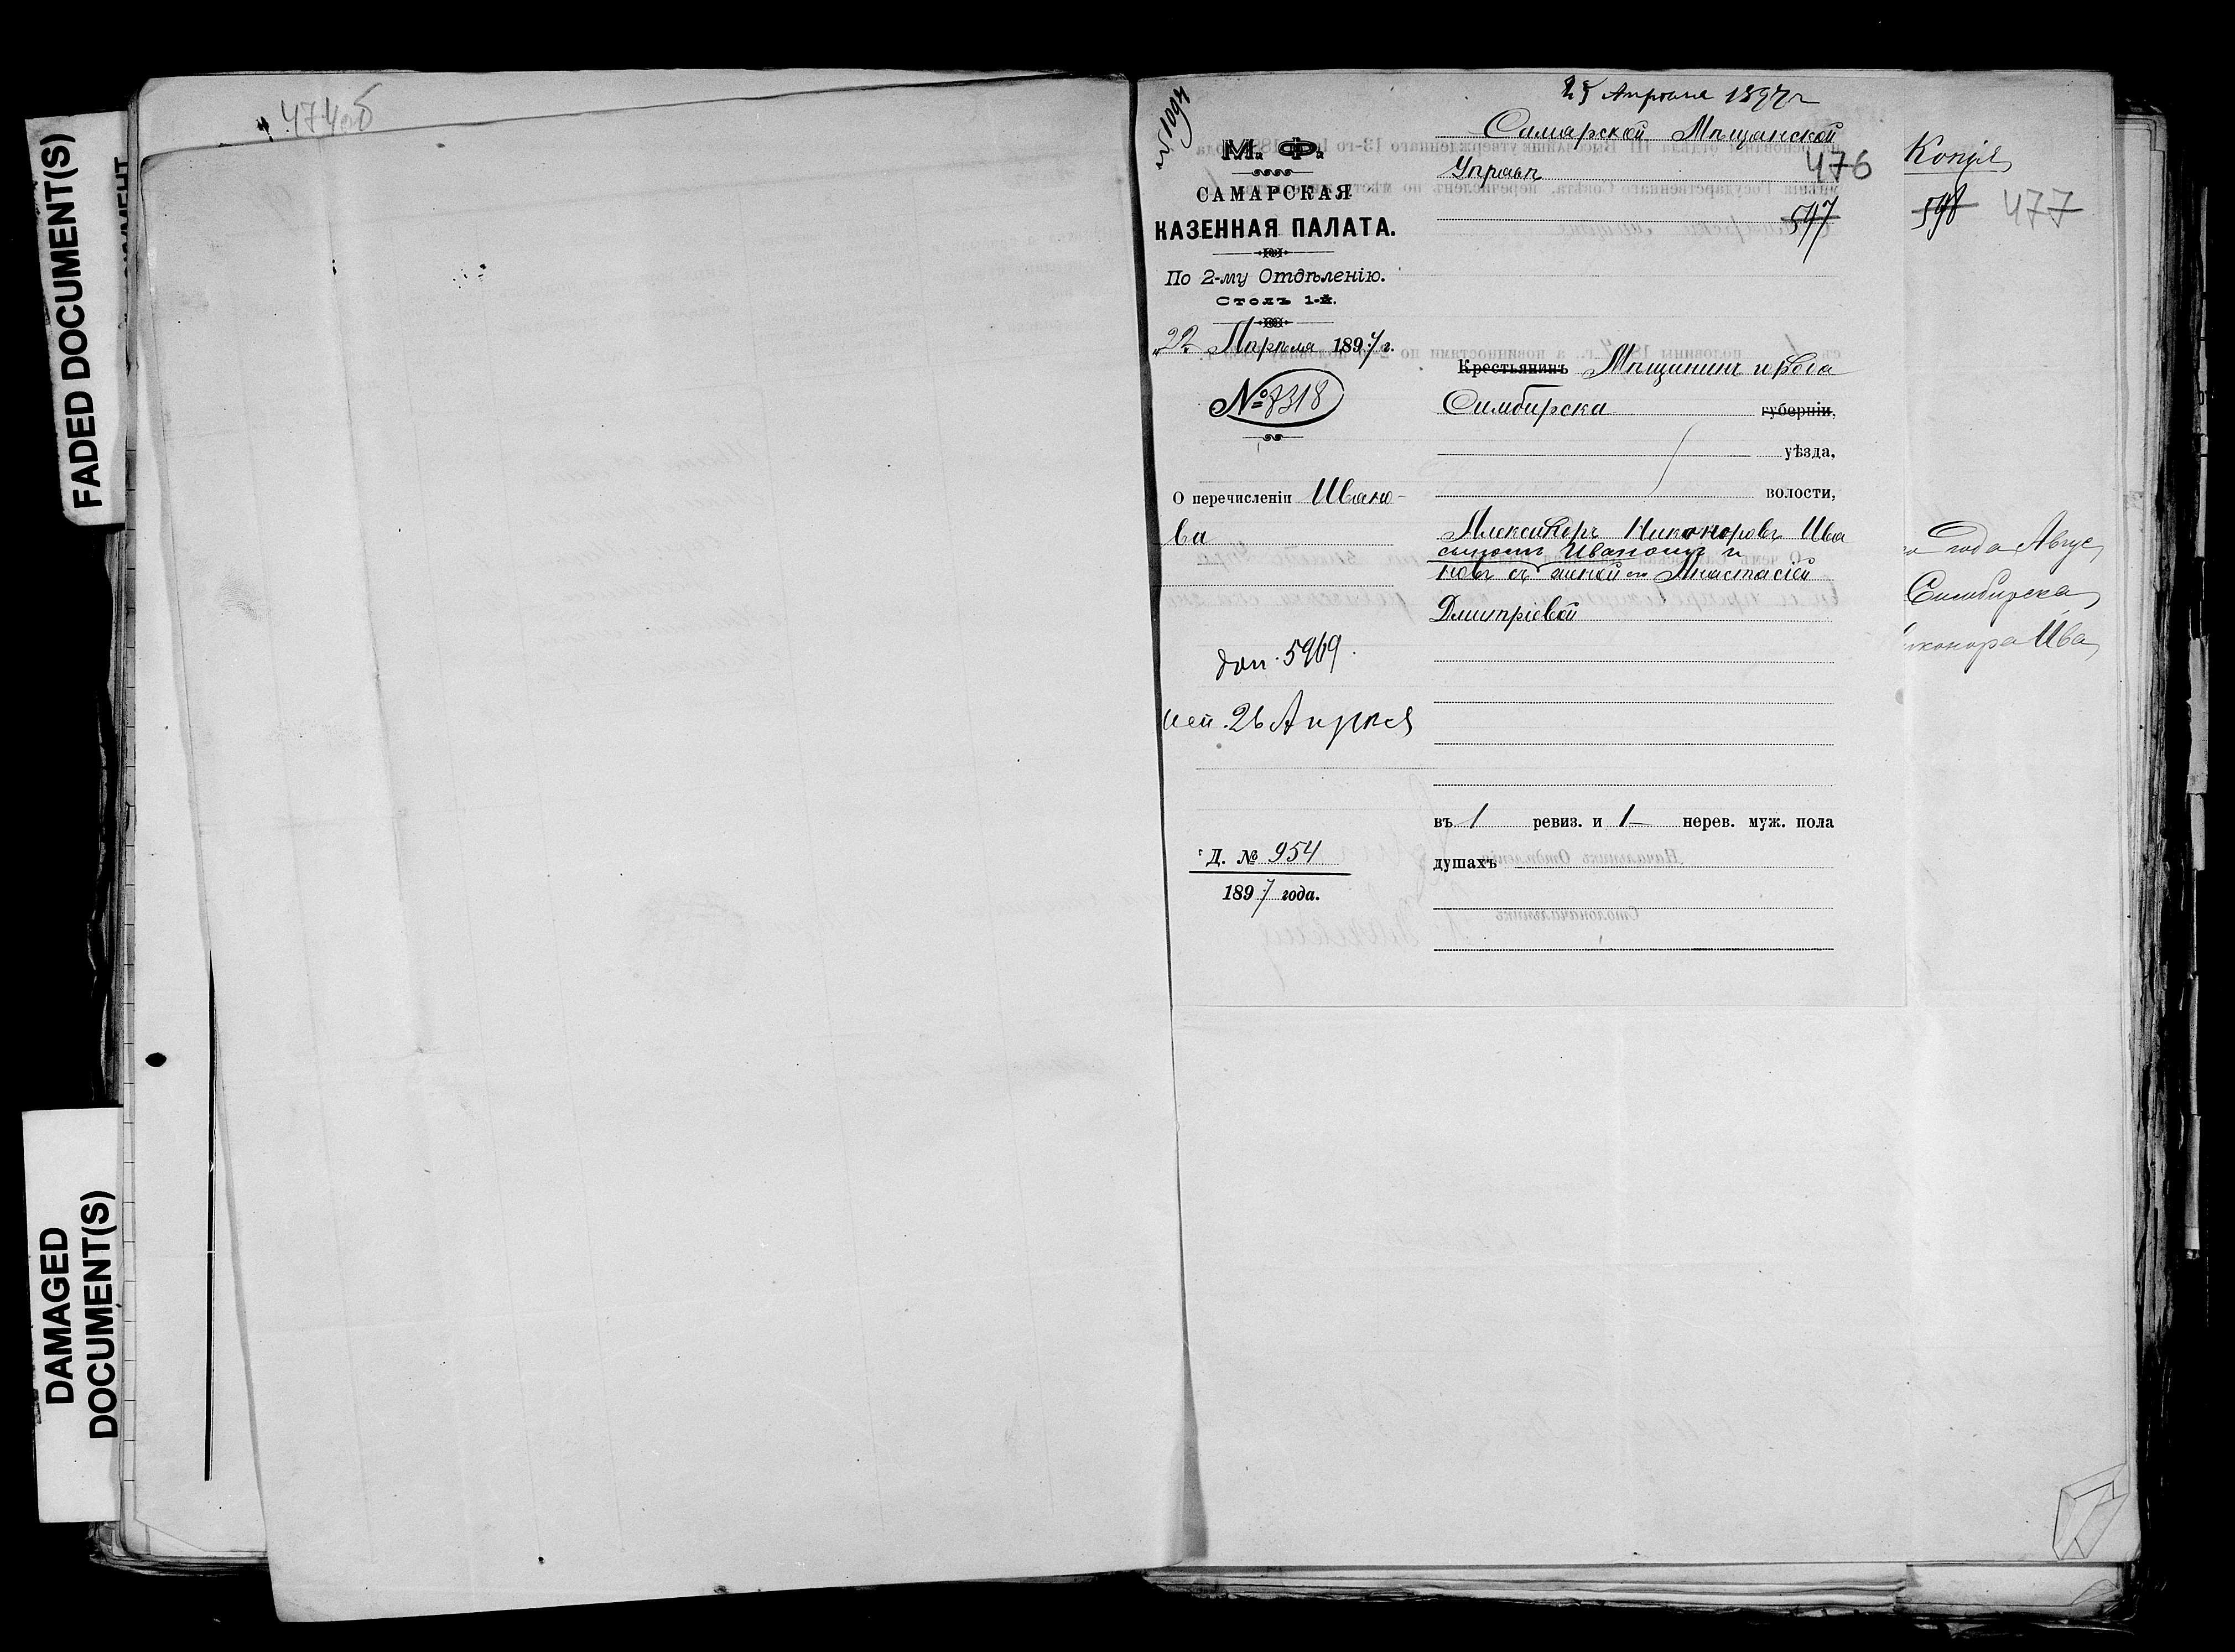 FADED DOCUMENT(S)
DAMAGED
DOCUMENT(S)
474об
25 Апрѣля 1897 г
М. Ф.
САМАРСКАЯ
КАЗЕННАЯ ПАЛАТА.
По 2-му Отдѣленію.
Столъ 1-й.
„22“ Апрѣля 1897 г.
№ 7318
О перечисленіи Ивано-
ва
доп. 5969.
исп. 26 Апрѣля
Д. № 954
1897 года.
Самарской Мѣщанской
Управѣ
476
597
Крестьянинъ Мѣщанинъ города
Симбирска губерніи,
уѣзда,
волости,
Александръ Никоноровъ Ива
сыномъ Иваномъ и
новъ съ женой Анастасіей
Дмитріевой
въ 1 ревиз. и 1 нерев. муж. пола
душахъ
Копія
598 477
года Авгус
Симбирска
иконора Ива